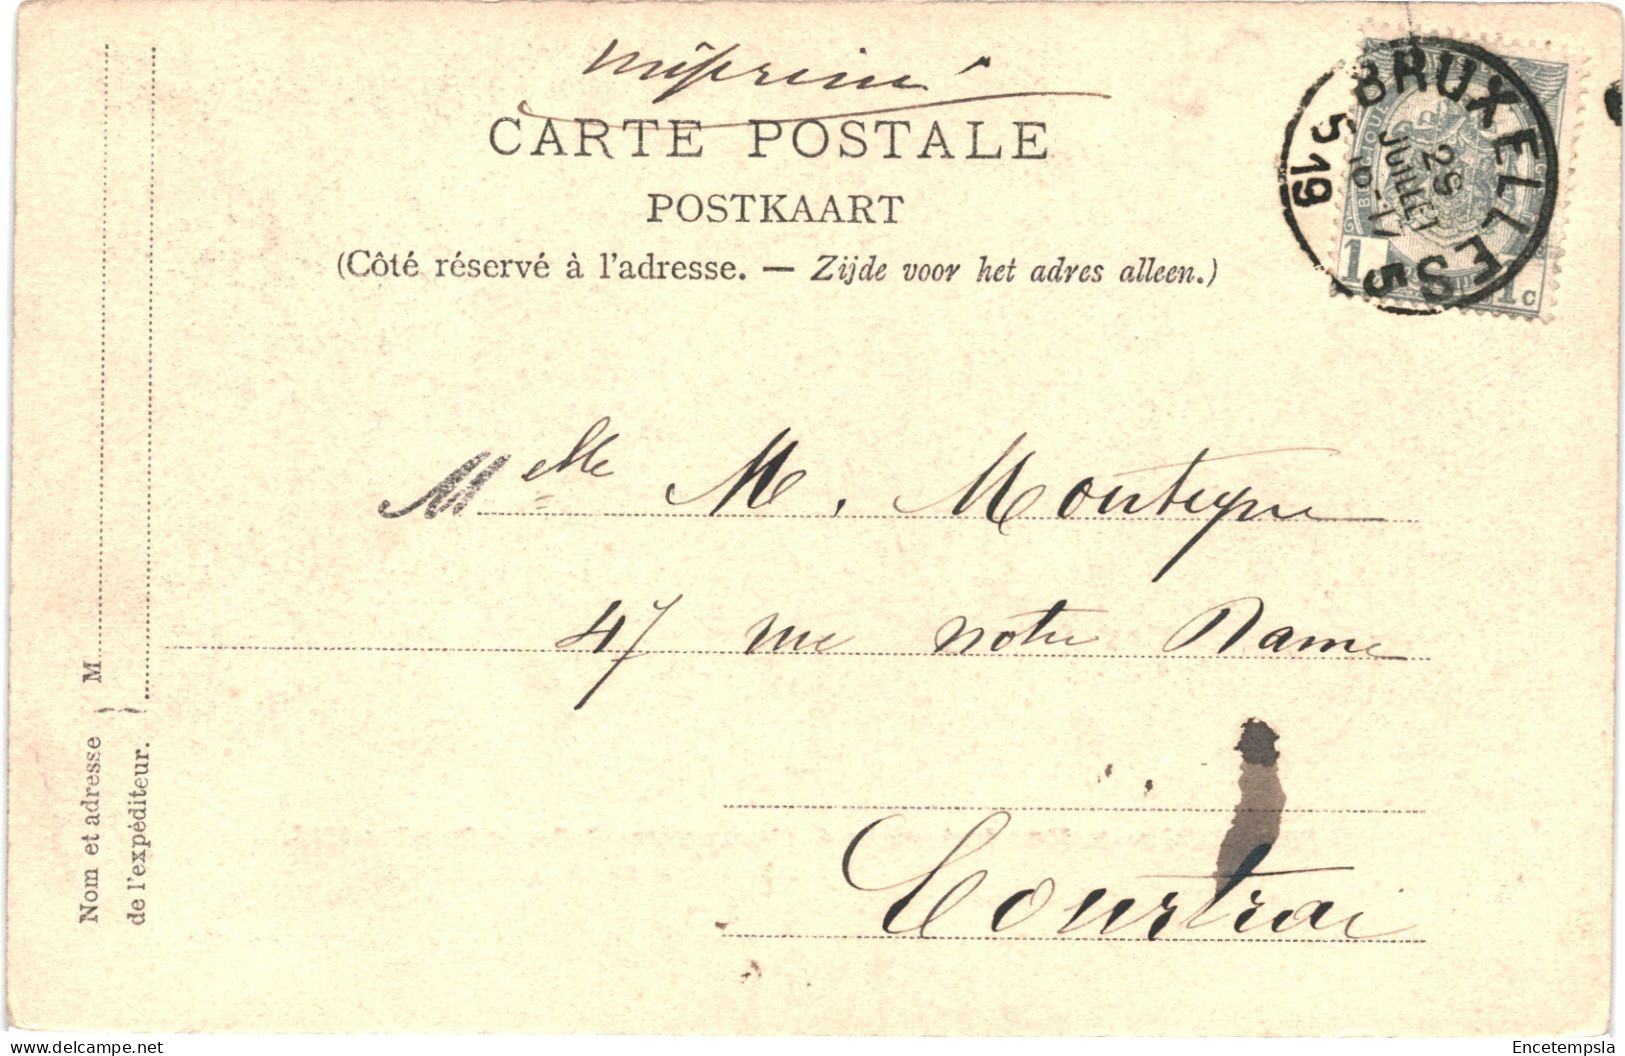 imprimé
CARTE POSTALE
POSTKAART
(Côté réservé à l'adresse. — Zijde voor het adres alleen.)
BRUXELLES 5
29
JUILLET
16-17
5 19
1 1c
Melle M. Montigne
47 rue notre Dame
Courtrai
Nom et adresse } M
de l'expéditeur.
Encetempsla